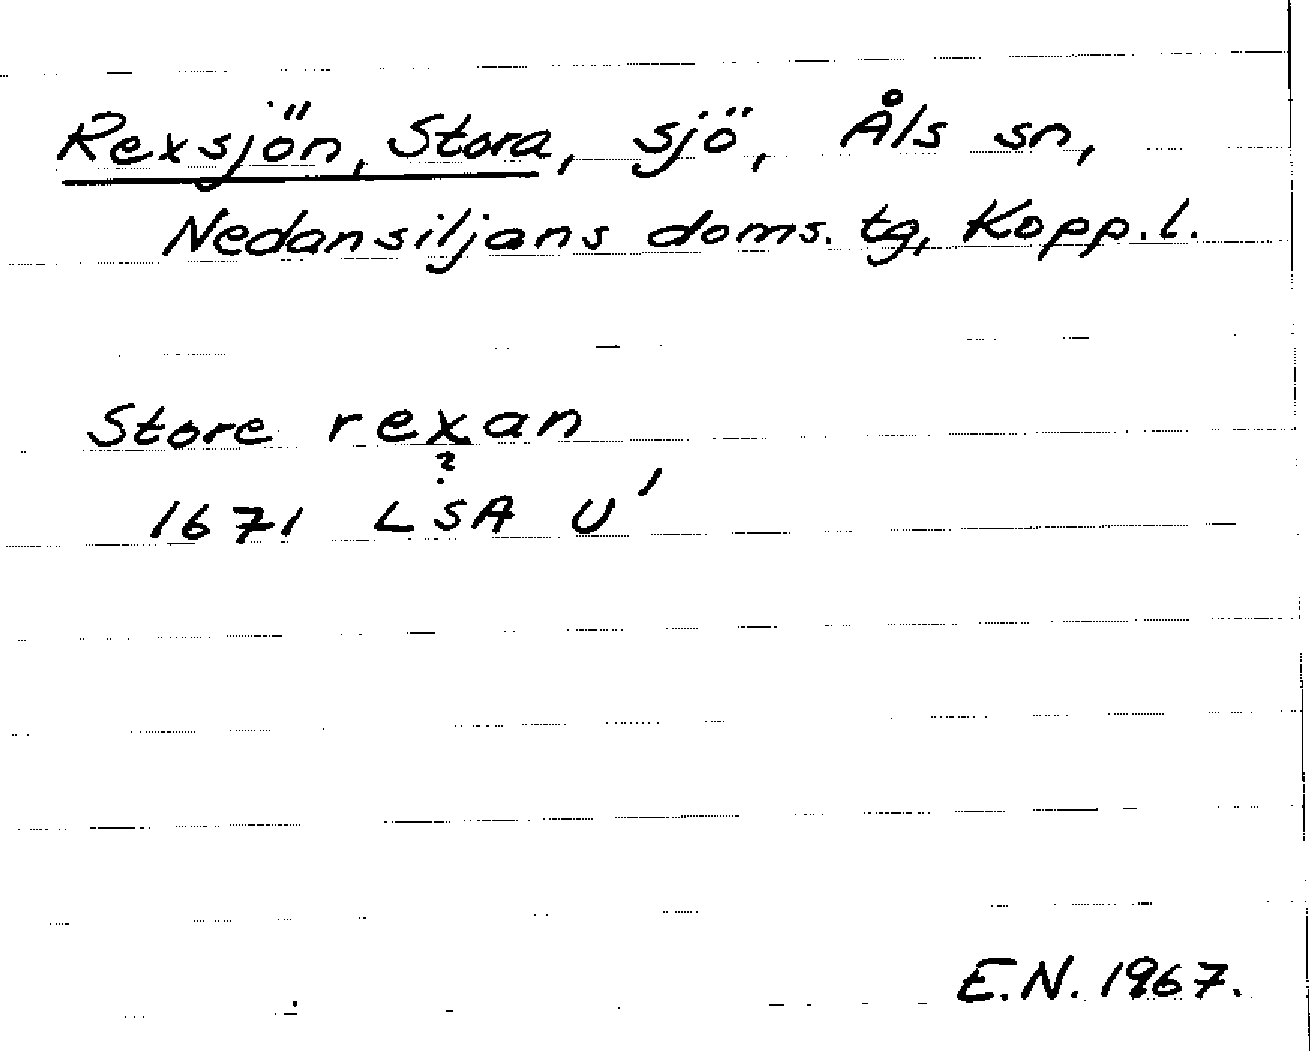 Rexsjön, Stora, sjö, Åls sn,
Nedansiljans doms. tg, Kopp. l.
Store rexan
?
1671 LSA U'
E.N. 1967.